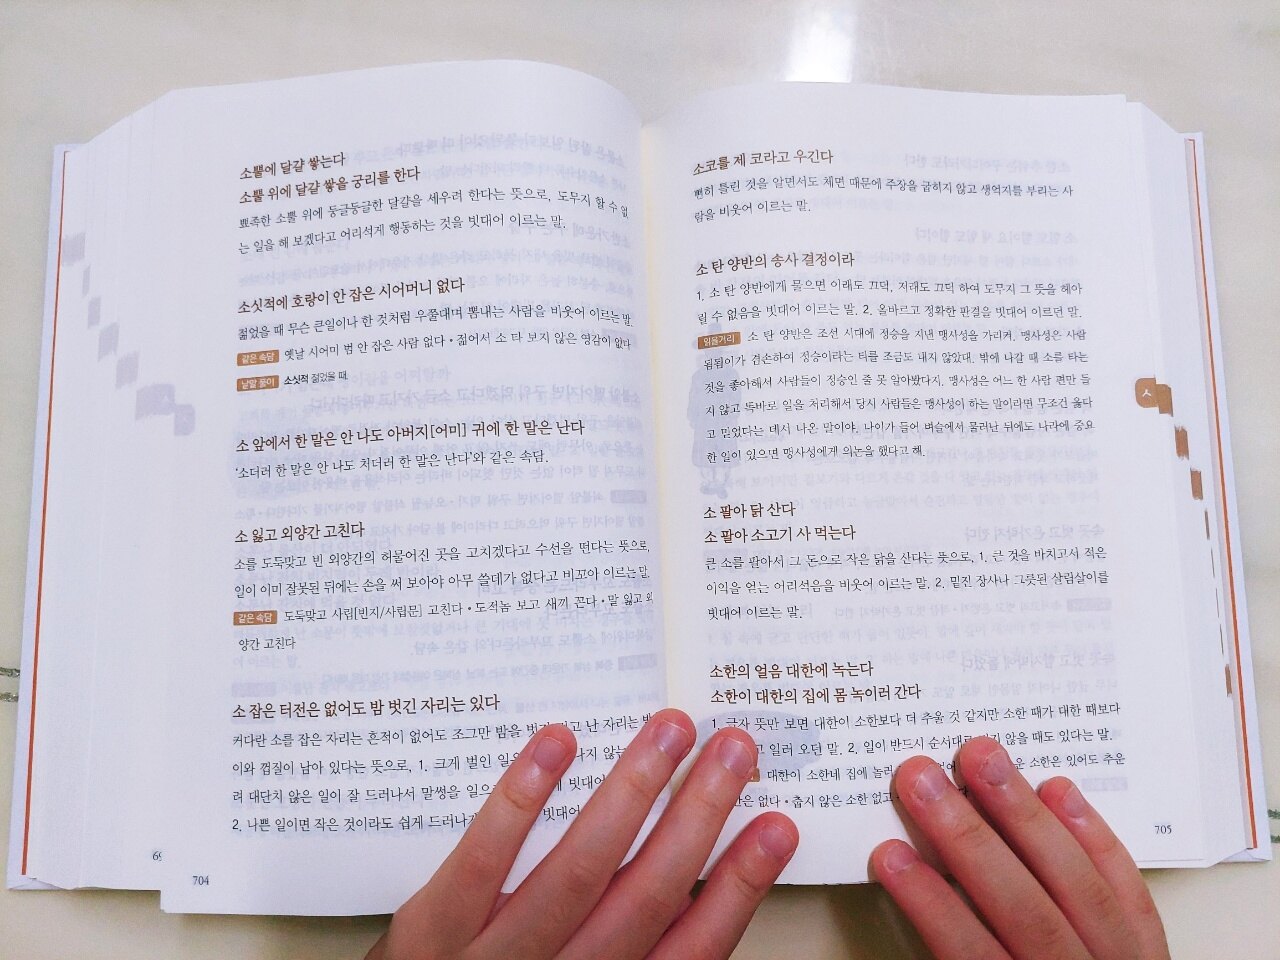 소뿔에 달걀 쌓는다
소뿔 위에 달걀 쌓을 궁리를 한다
뾰족한 소뿔 위에 둥글둥글한 달걀을 세우려 한다는 뜻으로, 도무지 할 수 없
는 일을 해 보겠다고 어리석게 행동하는 것을 빗대어 이르는 말.
소싯적에 호랑이 안 잡은 시어머니 없다
젊었을 때 무슨 큰일이나 한 것처럼 우쭐대며 뽐내는 사람을 비웃어 이르는 말.
같은 속담 옛날 시어미 범 안 잡은 사람 없다 • 젊어서 소 타 보지 않은 영감이 없다
낱말 풀이 소싯적 젊었을 때.
소 앞에서 한 말은 안 나도 아버지[어미] 귀에 한 말은 난다
'소더러 한 말은 안 나도 처더러 한 말은 난다'와 같은 속담.
소 잃고 외양간 고친다
소를 도둑맞고 빈 외양간의 허물어진 곳을 고치겠다고 수선을 떤다는 뜻으로,
일이 이미 잘못된 뒤에는 손을 써 보아야 아무 쓸데가 없다고 비꼬아 이르는 말.
같은 속담 도둑맞고 사립[빈지/사립문] 고친다 • 도적놈 보고 새끼 꼰다 • 말 잃고 외
양간 고친다
소 잡은 터전은 없어도 밤 벗긴 자리는 있다
커다란 소를 잡은 자리는 흔적이 없어도 조그만 밤을 벗겨 먹고 난 자리는 밤
이와 껍질이 남아 있다는 뜻으로, 1. 크게 벌인 일은 나지 않는
려 대단치 않은 일이 잘 드러나서 말썽을 일으 빗대어
2. 나쁜 일이면 작은 것이라도 쉽게 드러나게 빗대어
69
704
소코를 제 코라고 우긴다
뻔히 틀린 것을 알면서도 체면 때문에 주장을 굽히지 않고 생억지를 부리는 사
람을 비웃어 이르는 말.
소 탄 양반의 송사 결정이라
1. 소 탄 양반에게 물으면 이래도 끄덕, 저래도 끄덕 하여 도무지 그 뜻을 헤아
릴 수 없음을 빗대어 이르는 말. 2. 올바르고 정확한 판결을 빗대어 이르던 말.
읽을거리 소 탄 양반은 조선 시대에 정승을 지낸 맹사성을 가리켜. 맹사성은 사람
됨됨이가 겸손하여 정승이라는 티를 조금도 내지 않았대. 밖에 나갈 때 소를 타는
것을 좋아해서 사람들이 정승인 줄 못 알아봤다지. 맹사성은 어느 한 사람 편만 들
지 않고 똑바로 일을 처리해서 당시 사람들은 맹사성이 하는 말이라면 무조건 옳다
고 믿었다는 데서 나온 말이야. 나이가 들어 벼슬에서 물러난 뒤에도 나라에 중요
한 일이 있으면 맹사성에게 의논을 했다고 해.
소 팔아 닭 산다
소 팔아 소고기 사 먹는다
큰 소를 팔아서 그 돈으로 작은 닭을 산다는 뜻으로, 1. 큰 것을 바치고서 적은
이익을 얻는 어리석음을 비웃어 이르는 말. 2. 밑진 장사나 그릇된 살림살이를
빗대어 이르는 말.
소한의 얼음 대한에 녹는다
소한이 대한의 집에 몸 녹이러 간다
1. 글자 뜻만 보면 대한이 소한보다 더 추울 것 같지만 소한 때가 대한 때보다
고 일러 오던 말. 2. 일이 반드시 순서대로 되지 않을 때도 있다는 말.
대한이 소한네 집에 놀러 소한은 있어도 추운
없다 • 춥지 않은 소한 없고
705
ㅅ